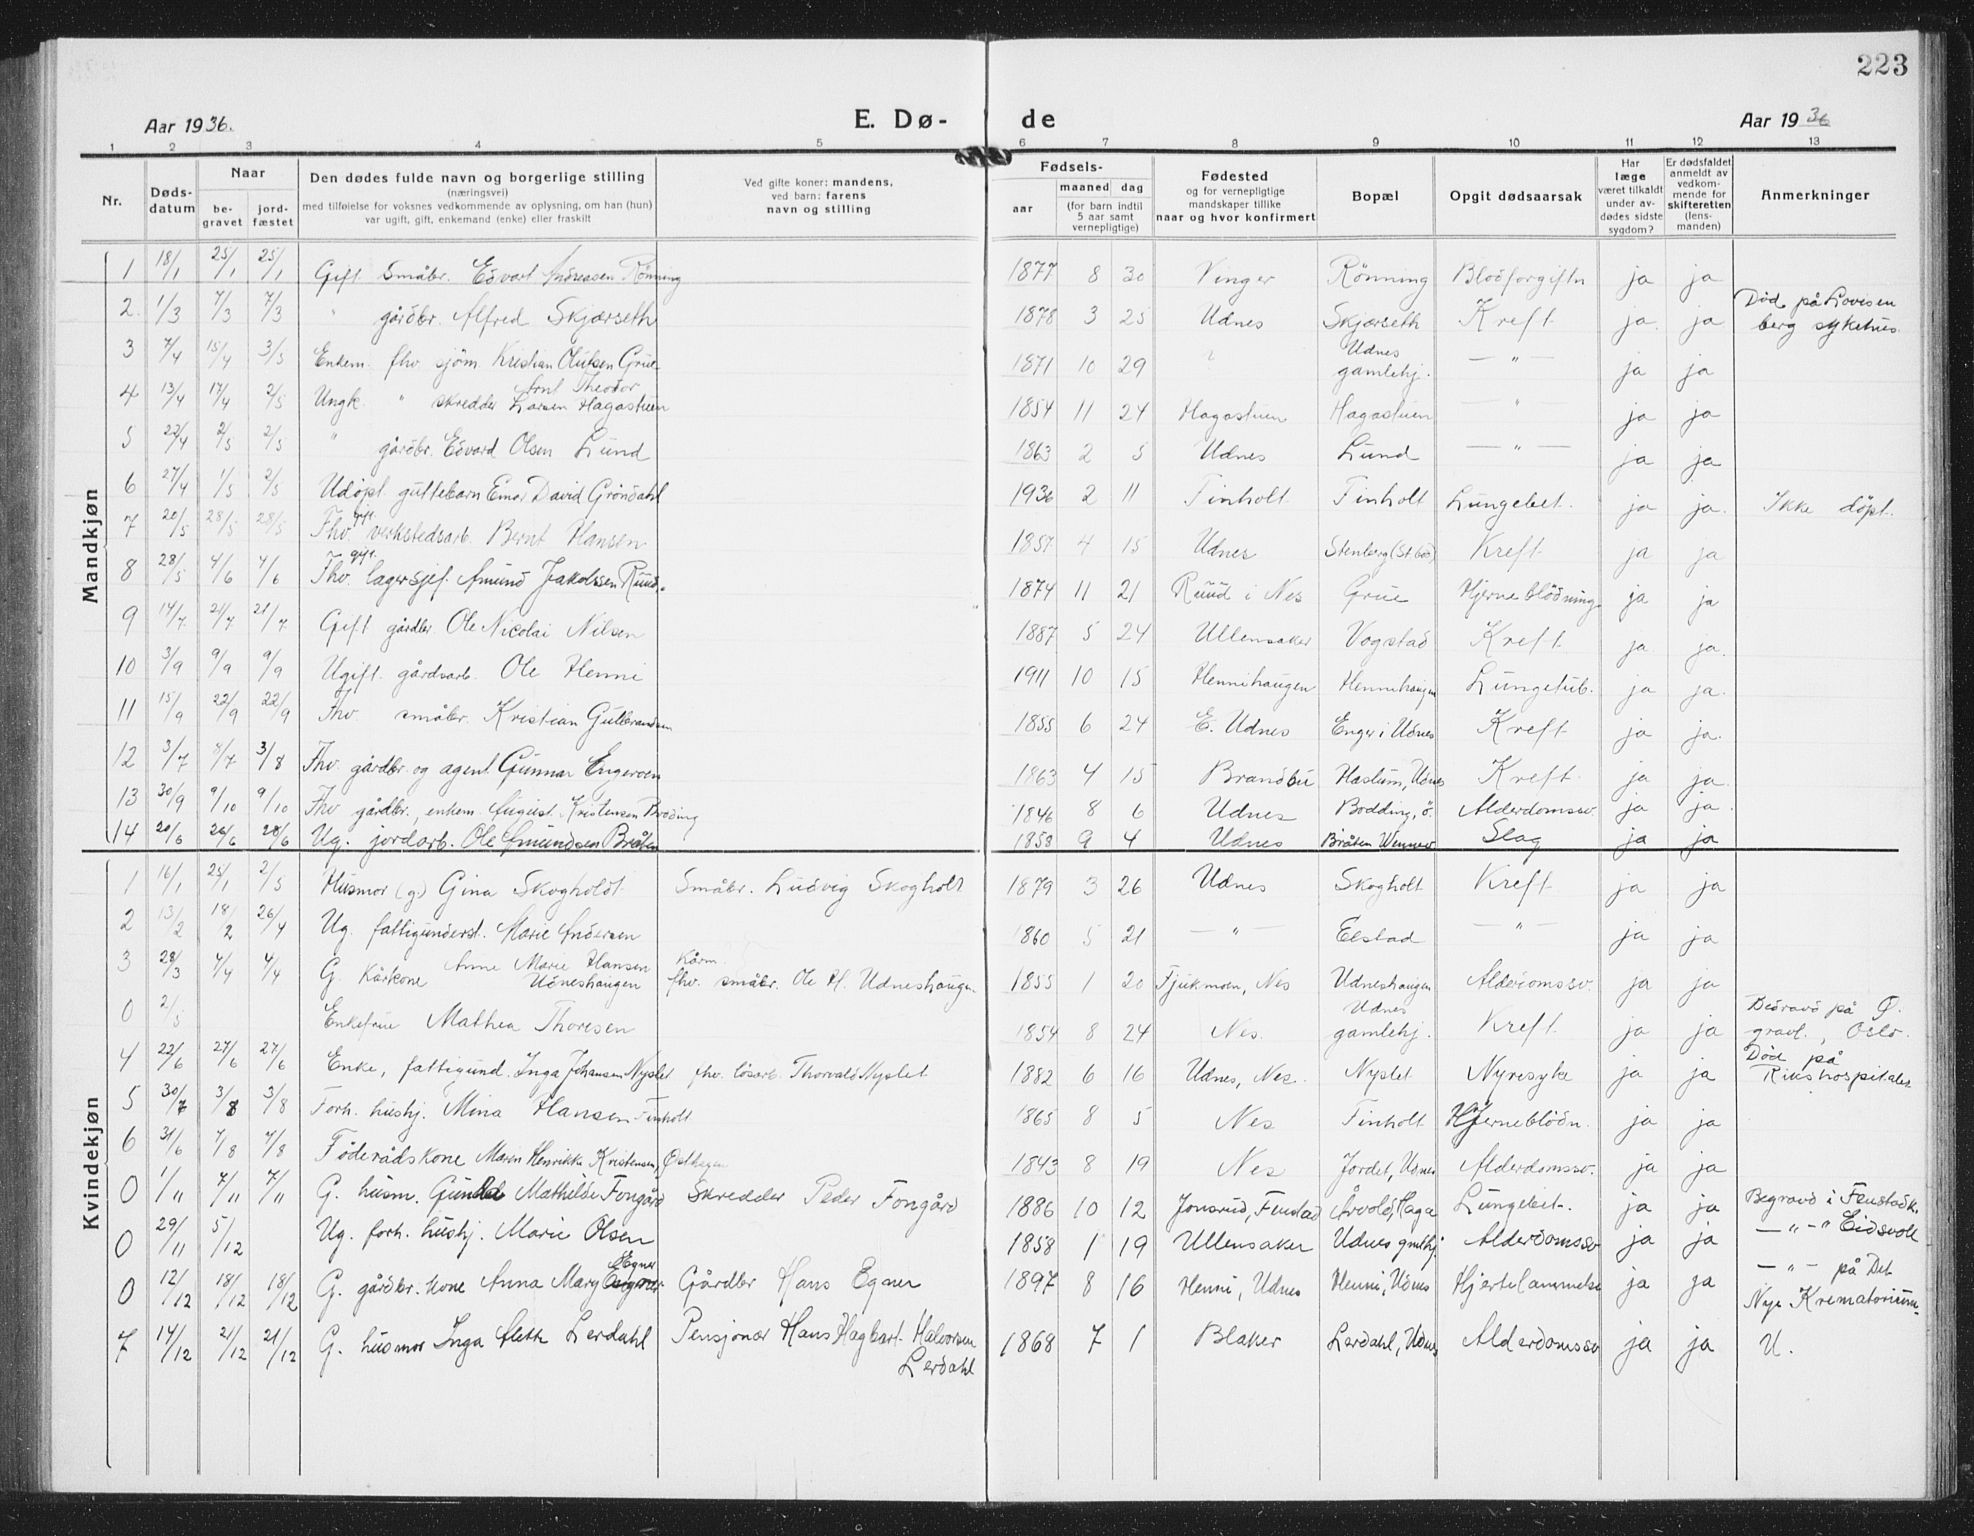 223
Aar 1936.
E. Dø-
de
Aar 1936
1 2 3 4 5 6 7 8 9 10 11 12 13
Nr.
Døds-
datum
Naar
be-
gravet
jord-
fæstet
Den dødes fulde navn og borgerlige stilling
(næringsvei)
med tilføielse for voksnes vedkommende av oplysning, om han (hun)
var ugift, gift, enkemand (enke) eller fraskilt
Ved gifte koner: mandens,
ved barn: farens
navn og stilling
Fødsels-
aar
maaned dag
(for barn indtil
5 aar samt
vernepligtige)
Fødested
og for vernepligtige
mandskaper tillike
naar og hvor konfirmert
Bopæl
Opgit dødsaarsak
Har
læge
været tilkaldt
under av-
dødes sidste
sygdom?
Er dødsfaldet
anmeldt av
vedkom-
mende for
skifteretten
(lens-
manden)
Anmerkninger
Mandkjøn
1 18/1 25/1 25/1 Gift Småbr. Edvart Andreassen Rönning 1877 8 30 Vinger Rönning Blodforgiftn ja ja
2. 1/3 7/3 7/3 " gårdbr. Alfred Skjærseth 1878 3 25 Udnes Skjærseth Kreft ja ja Död på Lovisen
berg sykehus.
3 7/4 15/4 3/5 Enkem. fhv. sjöm. Kristian Olufsen Grue 1871 10 29 ? Udnes
gamlehj. — " — ja ja
4 13/4 17/4 2/5 Ungk. " skredder Arnt Theodor
Larsen Hagastuen 1854 11 24 Hagastuen Hagastuen — " — ja ja
5 22/4 2/5 2/5 " gårdbr. Edvard Olsen Lund 1863 2 5 Udnes Lund — " — ja ja
6 27/4 1/5 2/5 Udöpt guttebarn Einar David Gröndahl 1936 2 11 Finholt Finholt Lungebet. ja ja. Ikke döpt.
7 20/5 28/5 28/5 Fhv. gift. verkstedsarb. Bernt Hansen 1857 4 15 Udnes Stenberg (St bö) Kreft ja ja
8 28/5 4/6 4/6 Fhv. gift. lagersjef. Amund Jakobsen Ruud. 1874 11 21 Ruud i Nes Grue Hjerneblödning ja ja
9 14/7 21/7 21/7 Gift gårdbr. Ole Nicolai Nilsen 1887 5 24 Ullensaker Vogstad Kreft ja ja.
10 3/9 9/9 9/9 Ugift. gårdsarb. Ole Henni 1911 10 15 Hennihaugen Hennihaugen Lungetub. ja ja.
11 15/9 22/9 22/9 Fhv. småbr. Kristian Gulbrandsen 1855 6 24 E. Udnes Enger i Udnes Kreft ja ja.
12 3/7 8/7 3/8 Fhv. gårdbr og agent Gunnar Engeroen 1863 4 15 Brandbu Haslum, Udnes Kreft ja ja.
13 30/9 9/10 9/10 Fhv gårdbr., enkem. August Kristensen Bodding 1846 8 6 Udnes Bodding, ö. Alderdomssv. ja ja.
14 20/6 26/6 28/6 Ug. jordarb. Ole Amundsen Bråten 1853 9 4 Udnes Bråten Slag ja ja
Kvindekjøn
1 16/1 25/1 2/5 Husmor (g.) Gina Skogholdt Småbr. Ludvig Skogholt 1879 3 26 Udnes Skogholt Kreft ja ja
2 13/2 18/2 26/4 Ug. fattigunderst. Marie Andersen 1860 5 21 — " — Elstad — " — ja ja
3 28/3 4/4 4/4 G. Kårkone Anne Marie Hansen
Udneshaugen Kårm.
fhv. småbr. Ole H. Udneshaugen 1855 1 20 Fjukmoen, Nes Udneshaugen Alderdomssv. ja ja
0 2/5 Enkefrue Mathea Thoresen 1854 8 24 Nes. Udnes
gamlehj. Kreft ja ja Bedravd på Ø.
gravl., Oslo.
4 22/6 27/6 27/6 Enke, fattigund. Inga Johansen Nyslet fhv. lösarb. Thorvald Nyslet 1882 6 16 Udnes, Nes. Nyslet Nyresyke ja ja Död på
Rikshospitalet
5 30/7 3/8 3/8 Forh. hushj. Mina Hansen Finholt 1865 8 5 Nes Finholt Hjerneblödn. ja ja
6 31/6 7/8 7/8 Föderådskone Maren Henrikke Kristensen, Østhagen 1843 8 19 Nes Jordet, Udnes Alderdomssv. ja ja
0 1/11 7/11 7/11 G. husm. Gunda Mathilde Fongård Skredder Peder Fongård 1886 10 12 Jonsrud, Fenstad Årvold, Haga Lungebet. ja ja Begravd i Fenstad k.
0 29/11 5/12 Ug. forh. hushj. Marie Olsen 1858 1 19 Ullensaker Udnes gmlhj Alderdomssv ja ja — " — Eidsvoll
0 12/12 18/12 18/12 G. gårdbr. kone Anna Mary Egner Gårdbr Hans Egner 1897 8 16 Henni, Udnes Henni, Udnes Hjertelammelse ja ja — " — på Det
Nye Krematorium
7 14/12 21/12 21/12 G. husmor Inga Alette Lerdahl Pensjonær Hans Hagbart Halvorsen
Lerdahl 1868 7 1 Blaker Lerdahl, Udnes Alderdomssv ja ja U.